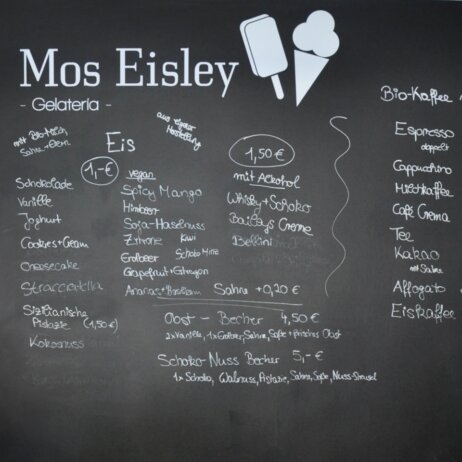 Mos Eisley
- Gelateria -
mit Bio-Milch
Sahne-Eiern
Eis
aus eigener
Herstellung
1,-€
Schokolade
Vanille
Joghurt
Cookies+Cream
Cheesecake
Stracciatella
Sizilianische
Pistazie (1,50€)
Kokosnuss
vegan
Spicy Mango
Himbeer
Soja-Haselnuss
Zitrone Kiwi
Erdbeer Schoko Minze
Grapefruit+Estragon
Ananas+Basilikum
1,50€
mit Alkohol
Whisky+Schoko
Baileys Creme
Bellini
Sahne +0,20 €
Obst - Becher 4,50€
2x Vanille, 1x Erdbeer, Sahne, Soße + frisches Obst
Schoko-Nuss Becher 5,-€
1x Schoko, Walnuss, Pistazie, Sahne, Soße, Nuss-Streusel
Bio-Kaffee
Espresso
doppelt
Cappuchino
Milchkaffee
Café Crema
Tee
Kakao
mit Sahne
Affogato
Eiskaffee